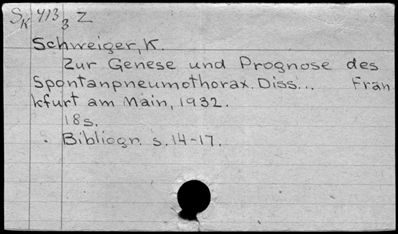 SK 413 3 Z
Schweiger, K.
Zur Genese und Prognose des
Spontanpneumothorax. Diss... Fran
kfurt am Main, 1932.
18s.
Bibliogr. s. 14-17.